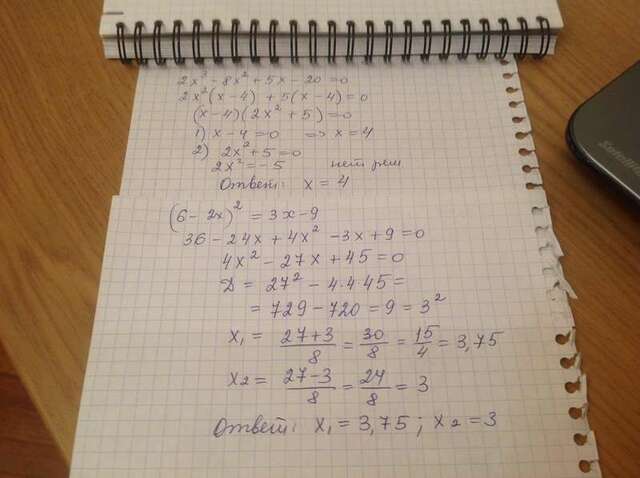 2x³ - 8x² + 5x - 20 = 0
2x²(x-4) + 5(x-4) = 0
(x-4)(2x²+5) = 0
1) x-4=0 => x=4
2) 2x²+5=0
2x²=-5 нет реш
Ответ: x = 4
(6-2x)² = 3x-9
36-24x+4x²-3x+9=0
4x²-27x+45=0
D = 27² - 4·4·45 =
= 729-720 = 9 = 3²
x₁ = (27+3)/8 = 30/8 = 15/4 = 3,75
x₂ = (27-3)/8 = 24/8 = 3
Ответ: x₁ = 3,75; x₂ = 3